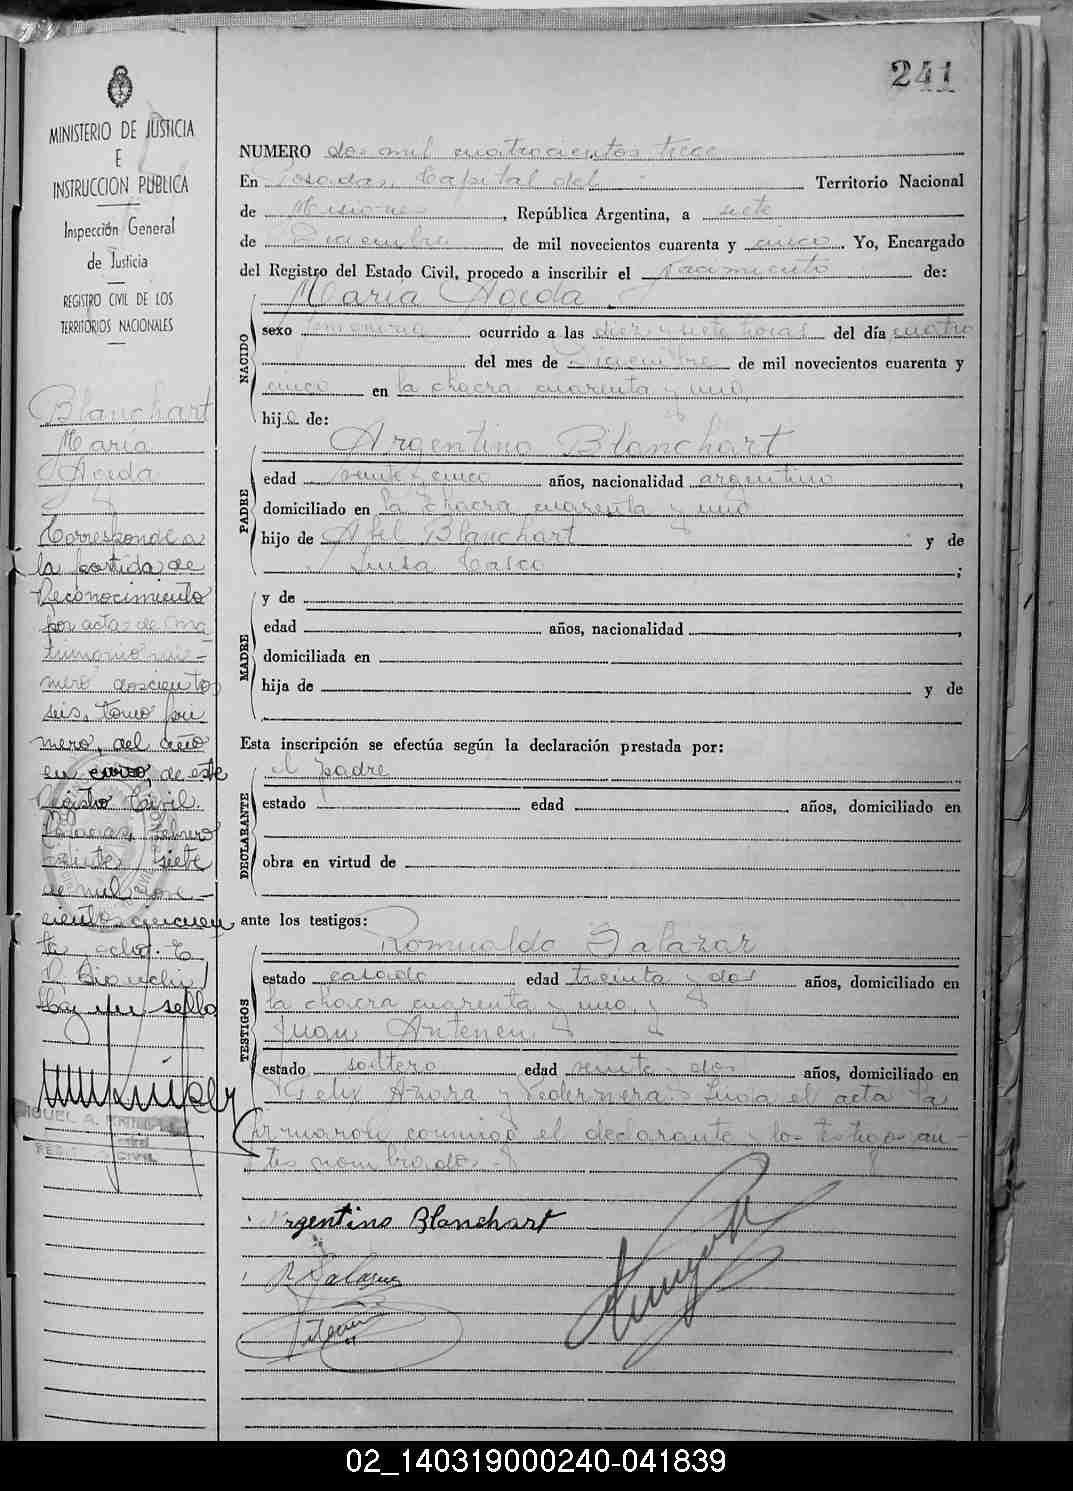 241
MINISTERIO DE JUSTICIA
E
INSTRUCCION PUBLICA
Inspección General
de Justicia
REGISTRO CIVIL DE LOS
TERRITORIOS NACIONALES
Blanchart
María
Ageda
Corresponde a
la partida de
Reconocimiento
por acta de ma
trimonio nú-
mero doscientos
seis, tomo pri
mero, del año
en curso, de este
Registro Civil.
Posadas, Febrero
veinte y siete
de mil nove-
cientos cincuen
ta y ocho. E
D. Bianchi
Hay un sello
MIGUEL A.
REGISTRO CIVIL
NUMERO dos mil cuatrocientos trece
En Posadas, Capital del Territorio Nacional
de Misiones, República Argentina, a siete
de Diciembre de mil novecientos cuarenta y cinco. Yo, Encargado
del Registro del Estado Civil, procedo a inscribir el nacimiento de:
NACIDO
María Ageda
sexo femenino ocurrido a las diez y siete horas del día cuatro
del mes de Diciembre de mil novecientos cuarenta y
cinco en la chacra cuarenta y uno,
hija de:
PADRE
Argentino Blanchart
edad veinte y cinco años, nacionalidad argentino,
domiciliado en la chacra cuarenta y uno
hijo de Abel Blanchart y de
Luisa Casco;
MADRE
y de
edad años, nacionalidad ,
domiciliada en
hija de y de
Esta inscripción se efectúa según la declaración prestada por:
DECLARANTE
el padre
estado edad años, domiciliado en
obra en virtud de
ante los testigos:
TESTIGOS
Romualdo Salazar
estado casado edad treinta y dos años, domiciliado en
la chacra cuarenta y uno, y
Juan Antenen
estado soltero edad veinte y dos años, domiciliado en
Felix Azara y Pedernera. Leída el acta la
firmaron conmigo el declarante y los testigos an-
tes nombrados.
Argentino Blanchart
R Salazar
02_140319000240-041839